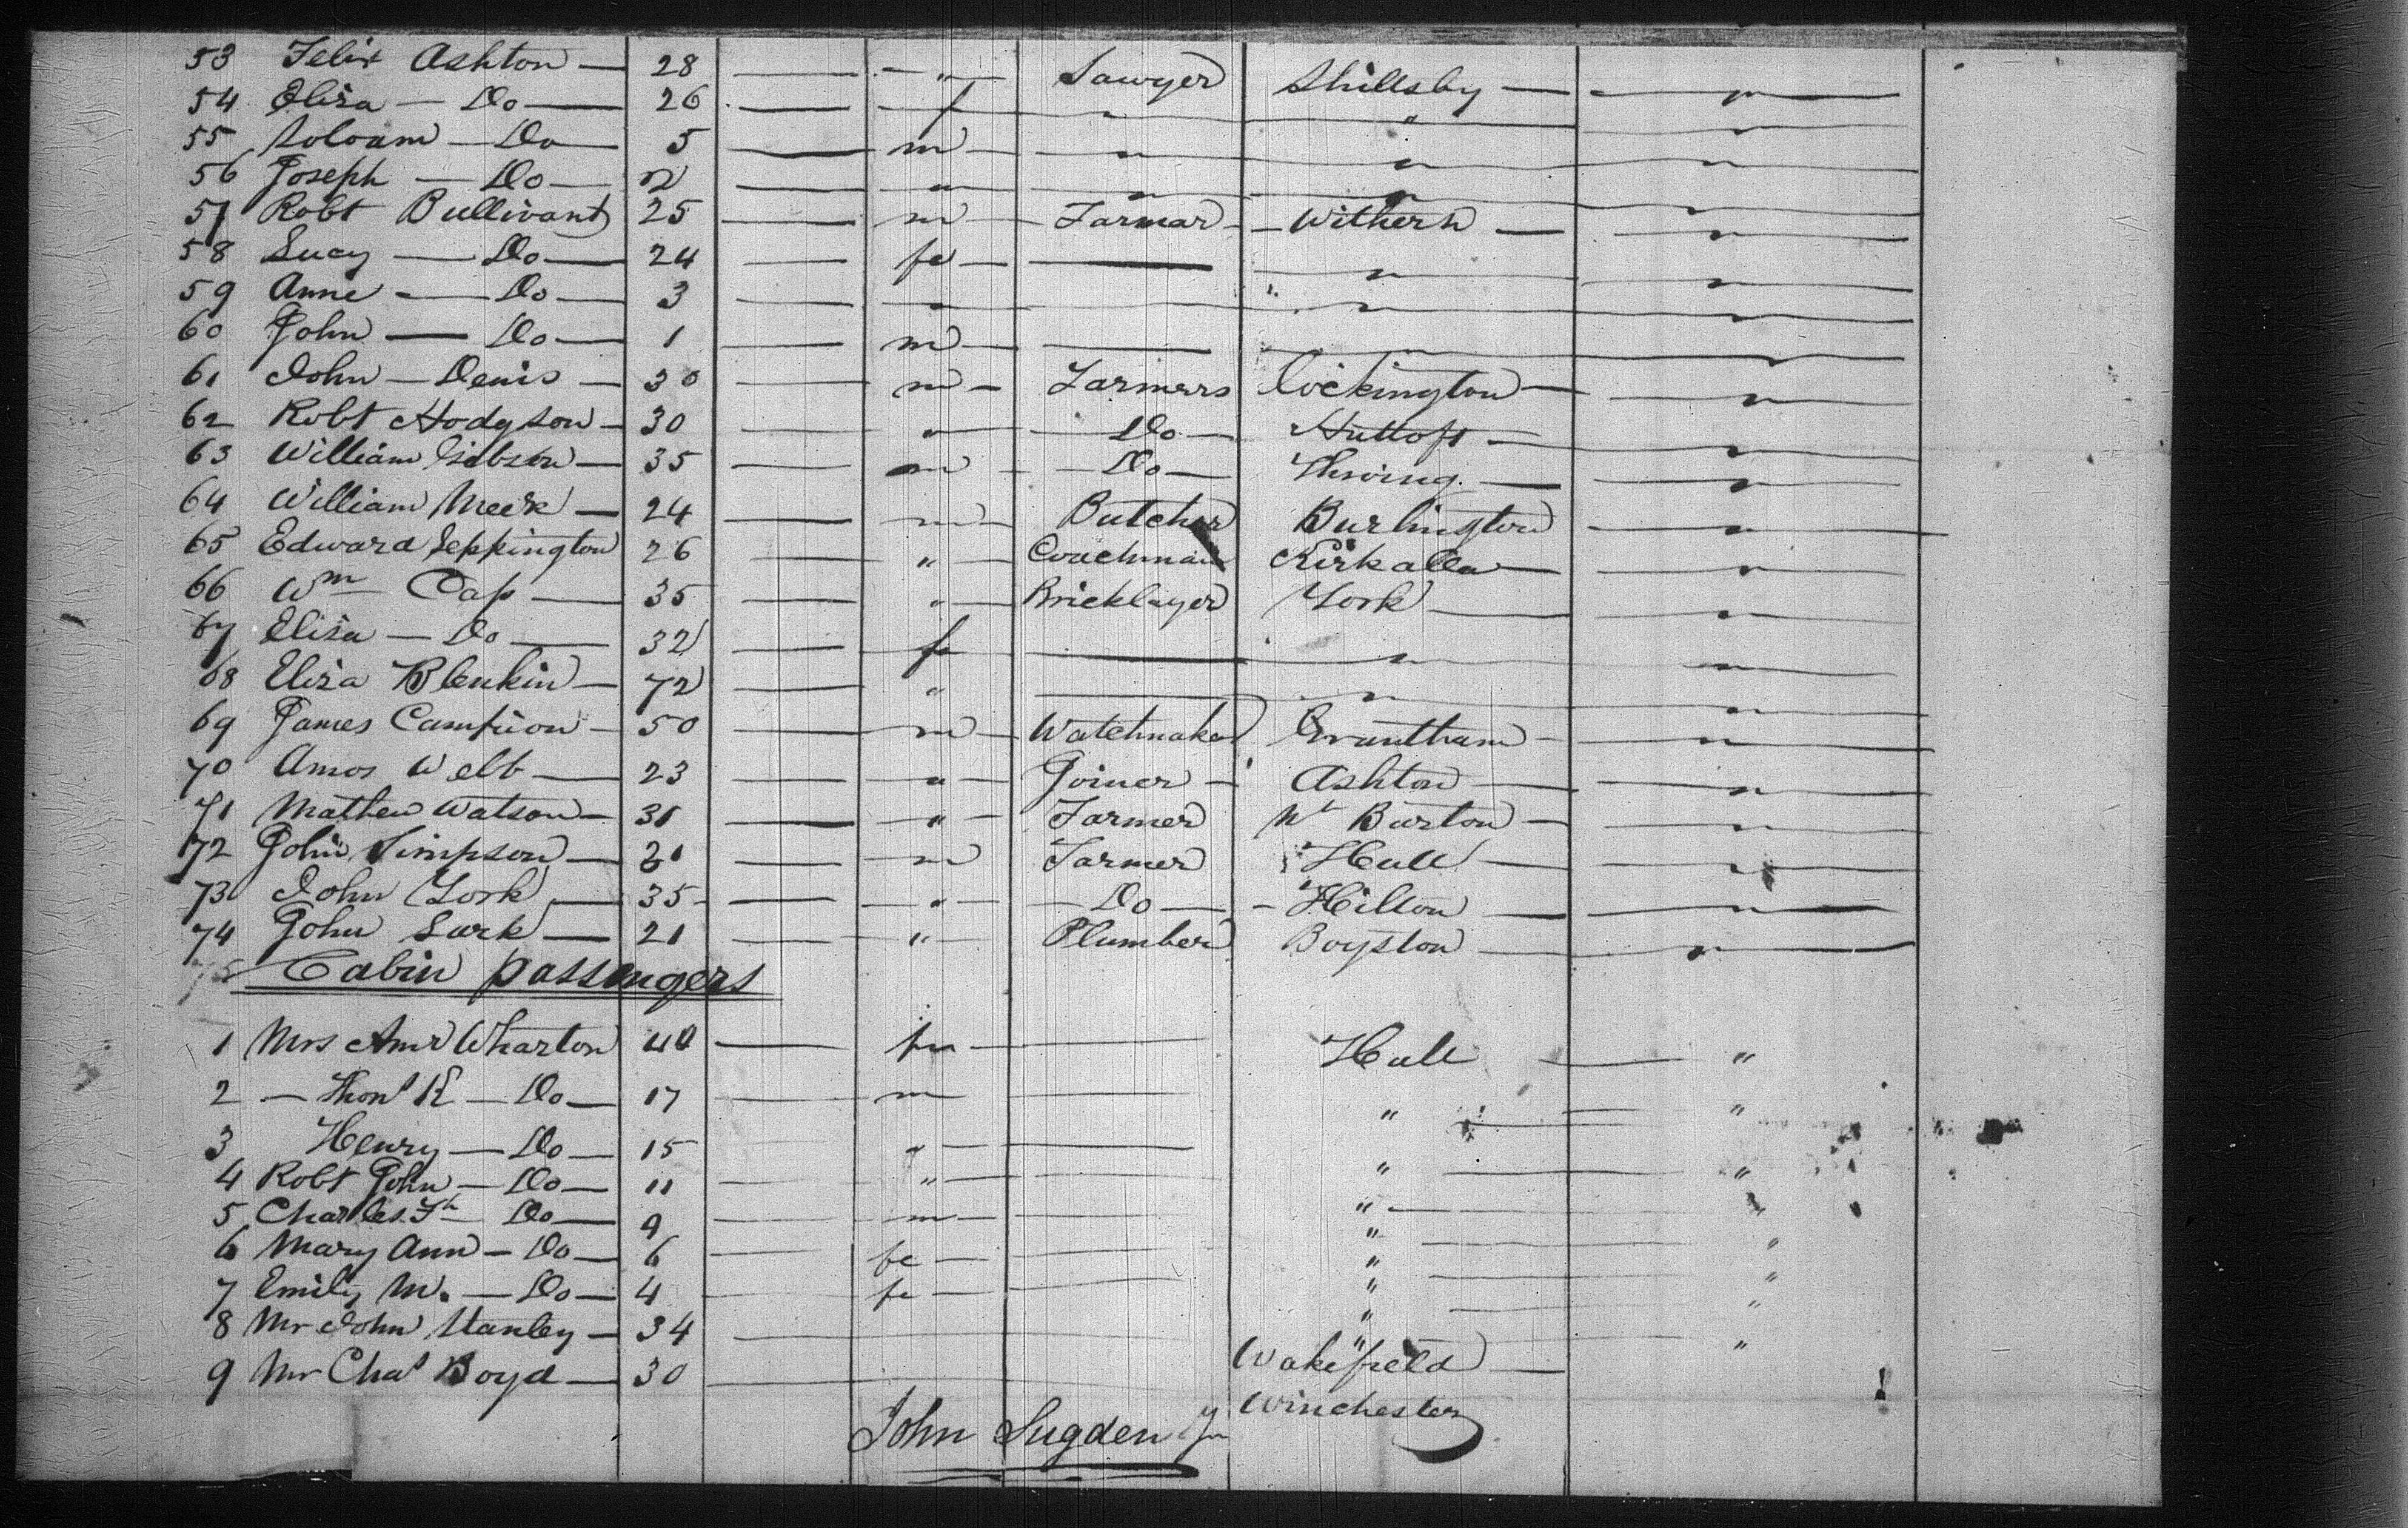 53 Felix Ashton — 28 — " — Sawyer Skillsby — "
54 Eliza — Do — 26 — f — " " "
55 — Do — 5 — m — " " "
56 Joseph — Do — 2 — " " " "
57 Robt Bullivant 25 — m — Farmar — Withern — "
58 Lucy — Do — 24 — fe — " "
59 Anne — Do — 3 — " — " "
60 John — Do — 1 — m — "
61 John — Denis — 30 — m — Farmers Cockington — "
62 Robt Hodgson — 30 — " — Do — Huttoft — "
63 William Gibson — 35 — m — Do — Thwing — "
64 William Meek — 24 — m — Butcher Burlington — "
65 Edward Leppington 26 — " — Coachman Kirkalla — "
66 Wm Cap — 35 — " — Bricklayer York — "
67 Eliza — Do — 32 — fe — " "
68 Eliza Blenkin — 72 — " — " "
69 James Campion — 50 — m — Watchmaker Grantham — "
70 Amos Webb — 23 — " — Joiner — Ashton — "
71 Mathew Watson — 31 — " — Farmer Nt Burton — "
72 John Simpson — 21 — m Farmer Hull — "
73 John York — 35 — " — Do — Hilton — "
74 John Lark — 21 — " — Plumber Boyston — "
75 Cabin passengers
1 Mrs Ann Wharton 40 — fe — Hull — "
2 — Thos K — Do — 17 — m — " — "
3 Henry — Do — 15 " — " — "
4 Robt John — Do — 11 " — " —
5 Charles Fk — Do — 9 — m — " — "
6 Mary Ann — Do — 6 — fe — " — "
7 Emily M. — Do — 4 — fe — " — "
8 Mr John Stanley — 34 — " — "
Wakefield —
9 Mr Chas Boyd — 30
Winchester
John Sugden Jn